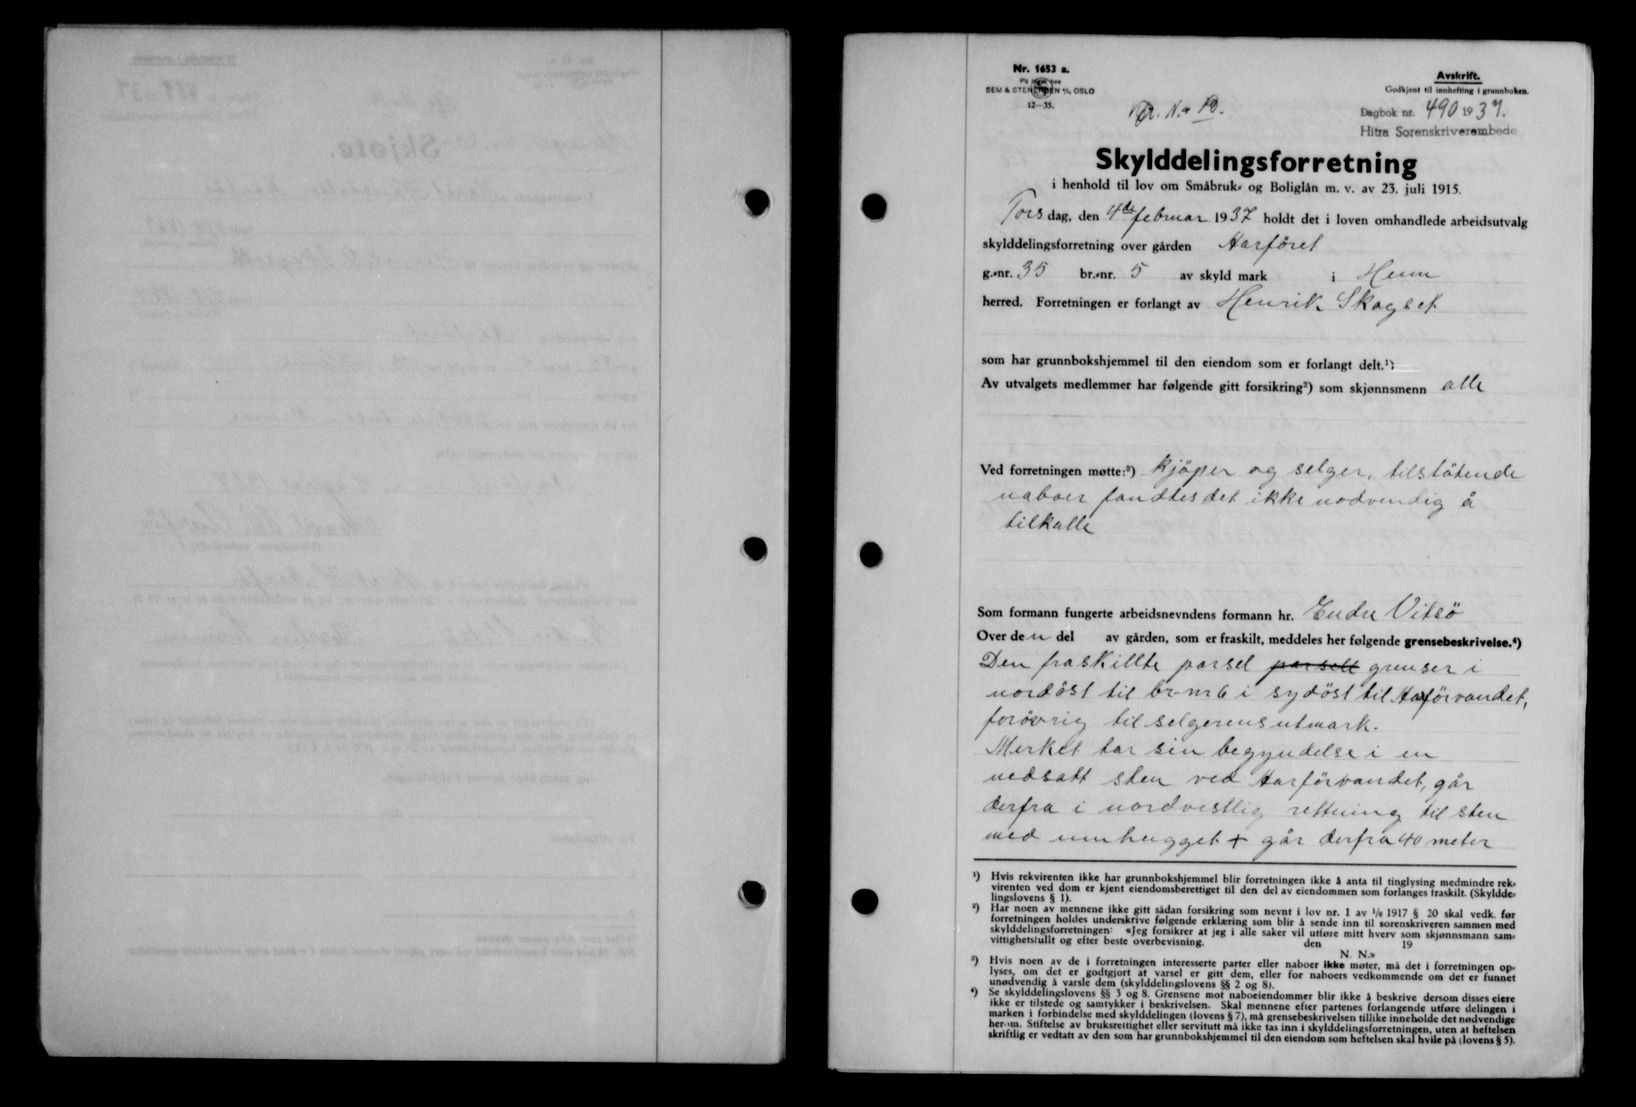 Nr. 1653 a.
SEM & STENERSEN A/S, OSLO
12—35.
Avskrift.
Godkjent til innhefting i grunnboken.
Dagbok nr. 490 1937.
Hitra Sorenskriverembede
Skylddelingsforretning
i henhold til lov om Småbruk- og Boliglån m. v. av 23. juli 1915.
Torsdag, den 4de februar 1937 holdt det i loven omhandlede arbeidsutvalg
skylddelingsforretning over gården Aarföret
g.-nr. 35 br.-nr. 5 av skyld mark i Hemn
herred. Forretningen er forlangt av Henrik Skagset
som har grunnbokshjemmel til den eiendom som er forlangt delt.¹)
Av utvalgets medlemmer har følgende gitt forsikring²) som skjønnsmenn alle
Ved forretningen møtte:³) kjöper og selger, tilstötende
naboer fandtes det ikke nodvendig å
tilkalle
Som formann fungerte arbeidsnevndens formann hr. Endre Vitsö
Over den del av gården, som er fraskilt, meddeles her følgende grensebeskrivelse.⁴)
Den fraskillte parsel parsell grenser i
nordöst til br-nr 6 i sydöst til Aarförvandet,
foröovrig til selgerens utmark.
Merket tar sin begyndelse i en
nedsatt sten ved Aarförvandet, går
derfra i nordvestlig rettning til sten
med innhugget + går derfra 40 meter
¹) Hvis rekvirenten ikke har grunnbokshjemmel blir forretningen ikke å anta til tinglysing medmindre rek-
virenten ved dom er kjent eiendomsberettiget til den del av eiendommen som forlanges fraskilt. (Skyldde-
lingslovens § 1).
²) Har noen av mennene ikke gitt sådan forsikring som nevnt i lov nr. 1 av 1/6 1917 § 20 skal vedk. før
forretningen holdes underskrive følgende erklæring som blir å sende inn til sorenskriveren sammen med
skylddelingsforretningen: «Jeg forsikrer at jeg i alle saker vil utføre mitt hverv som skjønnsmann sam-
vittighetsfullt og efter beste overbevisning. den 19
N. N.»
³) Hvis noen av de i forretningen interesserte parter eller naboer ikke møter, må det i forretningen op-
lyses, om det er godtgjort at varsel er gitt dem, eller for naboers vedkommende om det er funnet
unødvendig å varsle dem (skylddelingslovens §§ 2 og 8).
⁴) Se skylddelingslovens §§ 3 og 8. Grensene mot naboeiendommer blir ikke å beskrive dersom disses eiere
ikke er tilstede og samtykker i beskrivelsen. Skal mennene efter partenes forlangende utføre delingen i
marken i forbindelse med skylddelingen (lovens § 7), må grensebeskrivelsen tillike inneholde det nødvendige
herom. Stiftelse av bruksrettighet eller servitutt må ikke tas inn i skylddelingsforretningen, uten at heftelsen
skriftlig er vedtatt av den som har grunnbokshjemmel til den eiendom som heftelsen skal hvile på (lovens § 5).